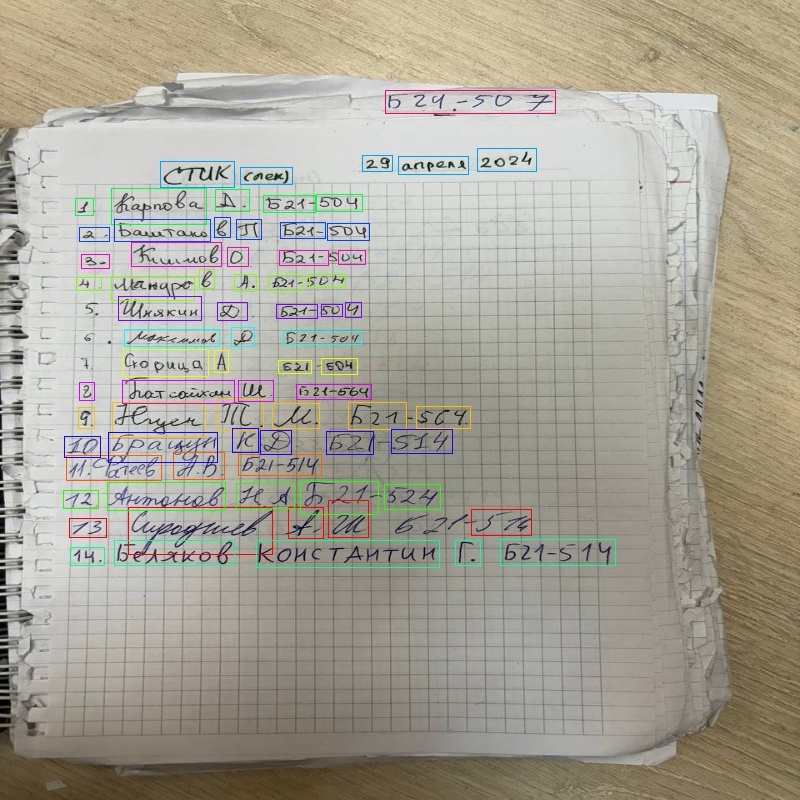 Б21-507
СТИК (лек) 29 апреля 2024
1. Карпова Д. Б21-504
2. Баштаков П Б21-504
3. Климов О. Б21-504
4. Мандров А. Б21-504
5. Шнякин Д. Б21-504
6. Максимов Д Б21-504
7. Скорица А Б21-504
8 Батсайхан Ш. Б21-564
9. Нгуен Т. М. Б21-564
10 Брацун К Д. Б21-514
11. А.В. Б21-514
12 Антонов Н А Б21-524
13 А. Ш Б21-514
14. Беляков Константин Г. Б21-514